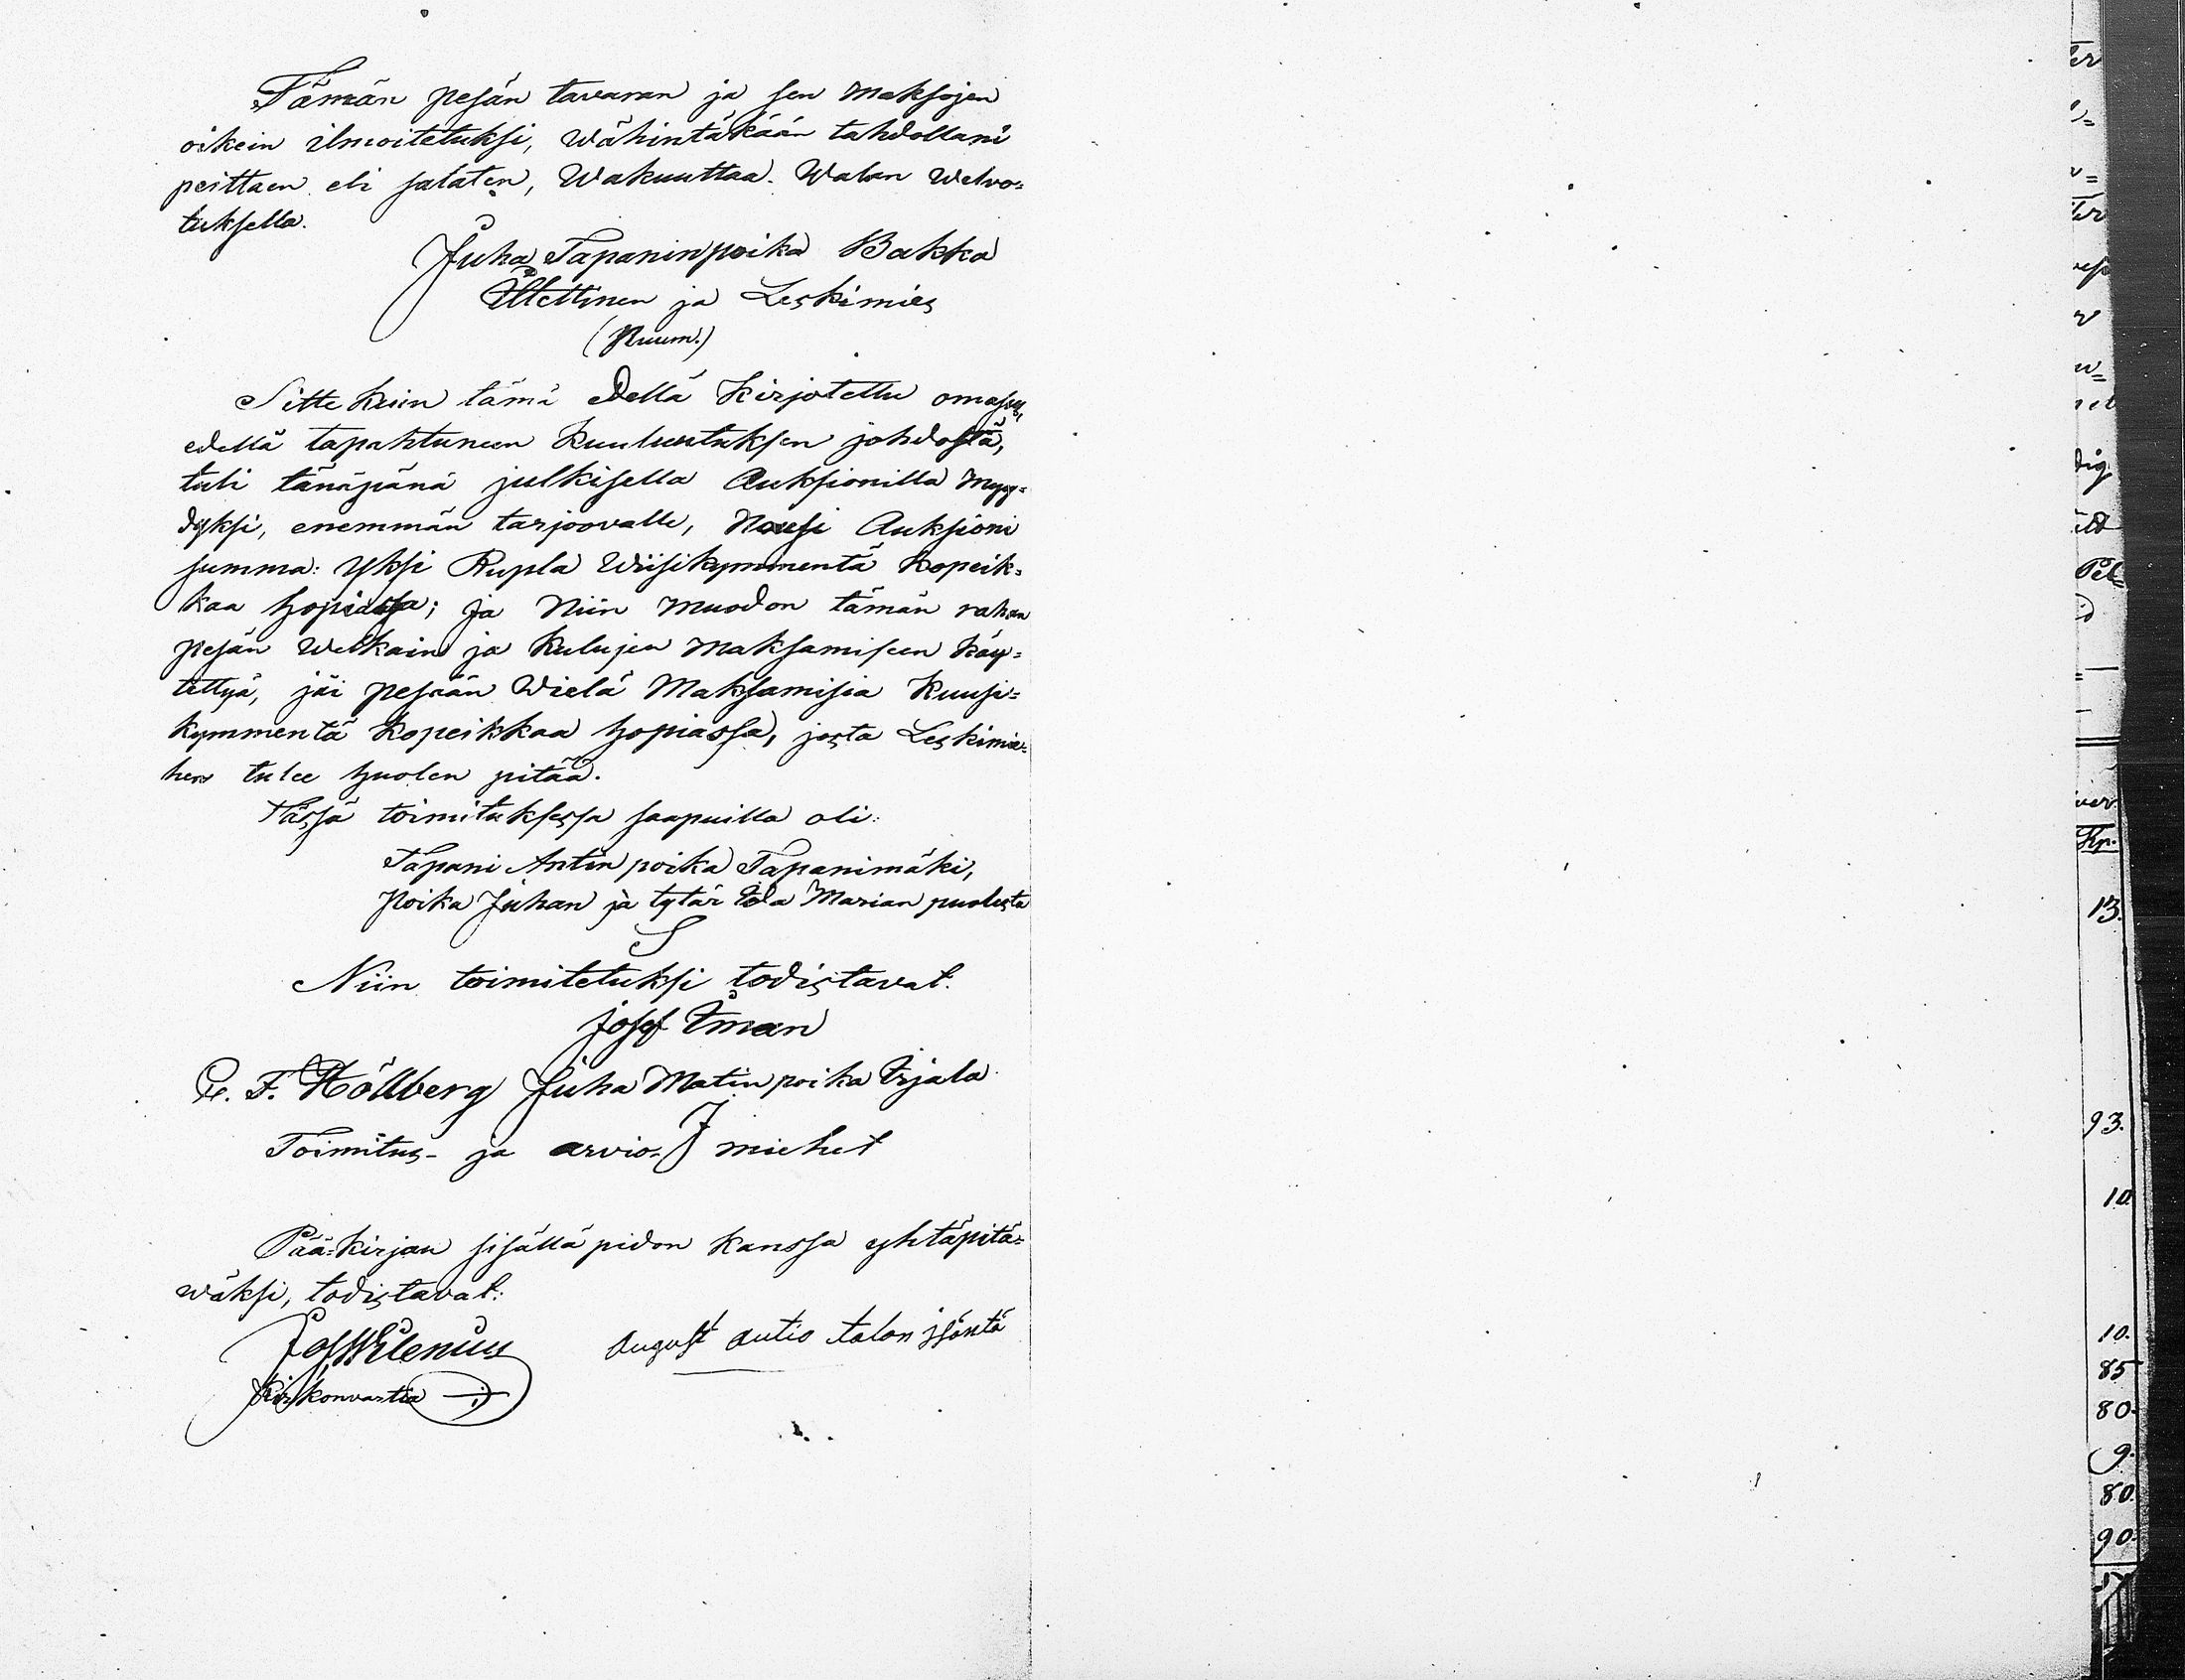 Tämän pesän tavaran ja sen Maksojen
oikein ilmoitetuksi, Wähintäkään tahdollani
peittaen eli salaten, Wakuuttaa Walan Welvo=
tuksella.
Juha Tapaninpoika Bakka
Itettinen ja Leskimies
(Puum.)
Sitte kuin tämä edellä Kirjotettu omasus,
edellä tapahtuneen Kuuluutuksen johdosta,
tuli tänäpänä julkisella Auksionilla Myy=
dyksi, enemmän tarjoovalle, Nousi Auksioni
summa: Yksi Rupla Wiisikymmentä Kopeik=
kaa hopiassa; ja Niin Muodon tämän rahan
pesän Welkain ja Kulujen Maksamiseen käy=
tettyä, jäi pesään Wielä Maksamisia Kuusi=
kymmentä Kopeikkaa hopiassa, josta Leskimie=
hen tulee huolen pitää.
Tässä toimituksessa saapuilla oli:
Tapani Antinpoika Tapanimäki,
Poika Juhan ja tytär Ida Marian puolesta
Niin toimitetuksi todistavat.
Josef Iman
F. Höllberg Juha Matinpoika Irjala
Toimitus- ja arvio- miehet
Pää=kirjan sisällä pidon kanssa yhtäpitä=
wäksi, todistavat:
August Autio talon isäntä
Kirkonvartia
13.
93.
10
10.
85
80.
9.
80.
90.